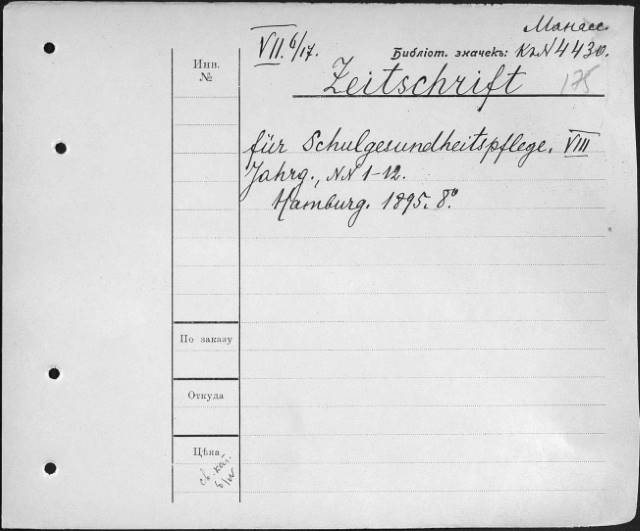 Манасс.
VII. 6/17.
Библіот. значекъ: К2N4430.
Инв. №
Zeitschrift 175
für Schulgesundheitspflege. VIII
Jahrg., NN 1-12.
Hamburg. 1895. 8°.
По заказу
Откуда
Цѣна
св. кат.